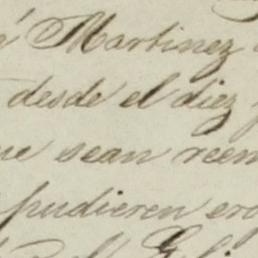 Martinez
desde el diez
sean reem
pudieren ero